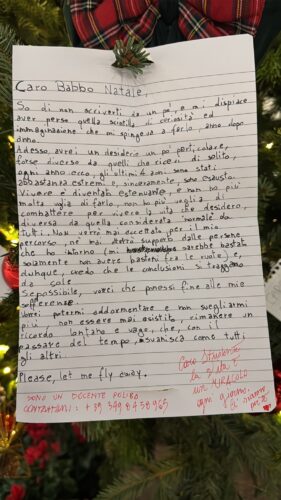 Caro Babbo Natale,
So di non scriverti da un po', e mi dispiace
aver perso quella scintilla di curiosità ed
immaginazione che mi spingeva a farlo, anno dopo
anno.
Adesso, avrei un desiderio un po' particolare,
forse diverso da quelli che ricevi di solito,
ogni anno ecco, gli ultimi 4 anni sono stati
abbastanza estremi e, sinceramente, sono esausto.
Vivere è diventato estenuante, e non ho più
molta voglia di farlo, non ho più voglia di
combattere per vivere la vita che desidero,
diversa da quella considerata "normale" da
tutti. Non verrò mai accettato per il mio
percorso, né mai verrò supportato dalle persone
che ho intorno (mi sarebbe bastato
solamente non avere bastoni fra le ruote) e,
dunque, credo che le conclusioni si traggano
da sole.
Se possibile, vorrei che ponessi fine alle mie
sofferenze.
Vorrei potermi addormentare e non svegliarmi
più, non essere mai esistito, rimanere un
ricordo lontano e vago, che, con il
passare del tempo, svanisca come tutti
gli altri.
Please, let me fly away.
SONO UN DOCENTE POLIBA
CONTATTAMI: +39 349 8458965
Caro Studente
la vita è
un MIRACOLO
ogni giorno.